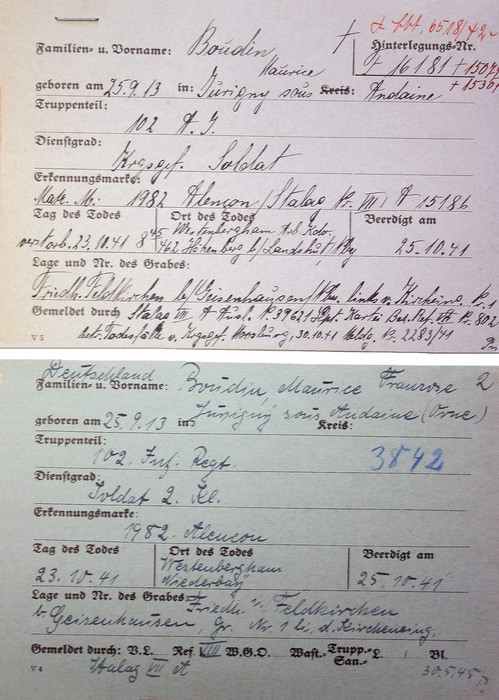 † Abt. 6518/42
Familien- u. Vorname: Boudin, †
Maurice
Hinterlegungs-Nr.
† 16181 + 1507
+ 1536
geboren am 25.9.13 in: Juvigny sous Kreis: Andaine
Truppenteil:
102 A. I.
Dienstgrad:
Krgsgef. Soldat
Erkennungsmarke:
Matr. M.: 1982 Alençon / Stalag Nr. VII A 15186
Tag des Todes Ort des Todes Beerdigt am
verstorb. 23.10.41 8 45 Westenbergham Arb. Kdo.
462 Hohenberg b/Landshut/Nby 25.10.41
Lage und Nr. des Grabes:
Friedh. Feldkirchen b/Geisenhausen/Nby. links v. Kirchein
Gemeldet durch Stalag VII A P. 39621 Kartei Nr. 802
Todesfälle v. Krgsgef. 30.10.41 Meldg. Nr. 2283/41
V 5
Deutschland
Familien- u. Vorname: Boudin, Maurice Franzose 2
geboren am 25.9.13 in: Juvigny sous Andaine (Orne)
Kreis:
Truppenteil:
102. Inf. Regt. 3842
Dienstgrad:
Soldat 2. Kl.
Erkennungsmarke:
1982. Alencon
Tag des Todes Ort des Todes Beerdigt am
23.10.41 Westenbergham
Niederbay 25.10.41
Lage und Nr. des Grabes: Friedh. v. Feldkirchen
b. Geisenhausen, Gr. Nr. 1 li. d. Kircheneing.
Gemeldet durch: V.L. Ref. VIII W.G.O. Wast.- Trupp.- L. Bl.
San.-
V 4 Stalag VII A 30.5.45